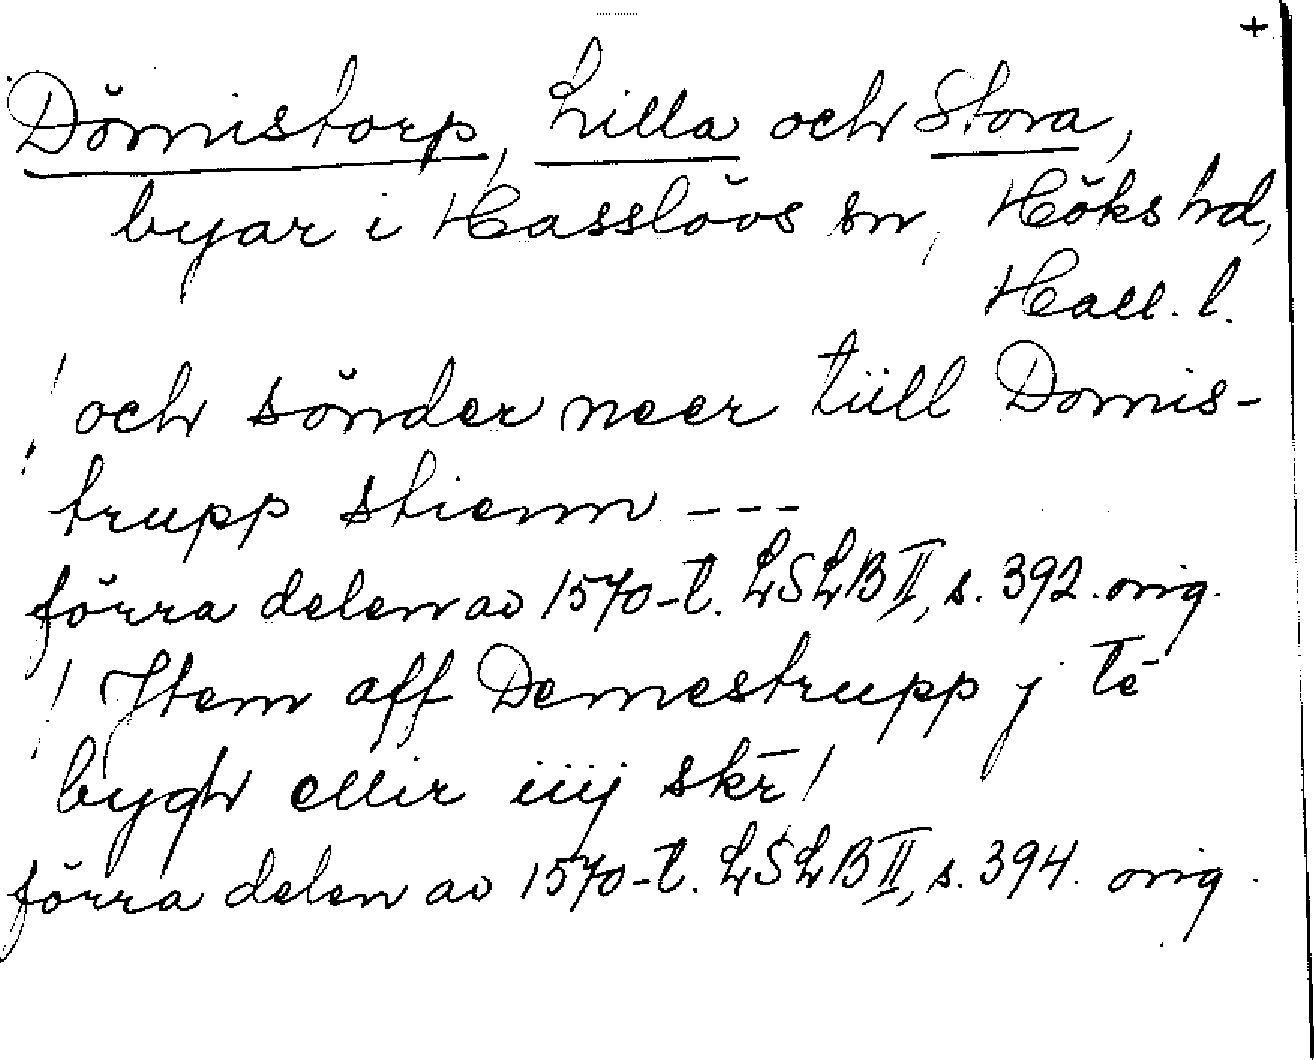 +
Dömistorp, Lilla och Stora,
byar i Hasslövs sn, Höks hd,
Hall. l.
! och sönder neer tiill Domis-
trupp stienn ---
förra delen av 1570-t. LSLB II, s. 392. orig.
! Jtem aff Demestrupp j tē
bygh ellir iiij skr̄!
förra delen av 1570-t. LSLB II, s. 394. orig.